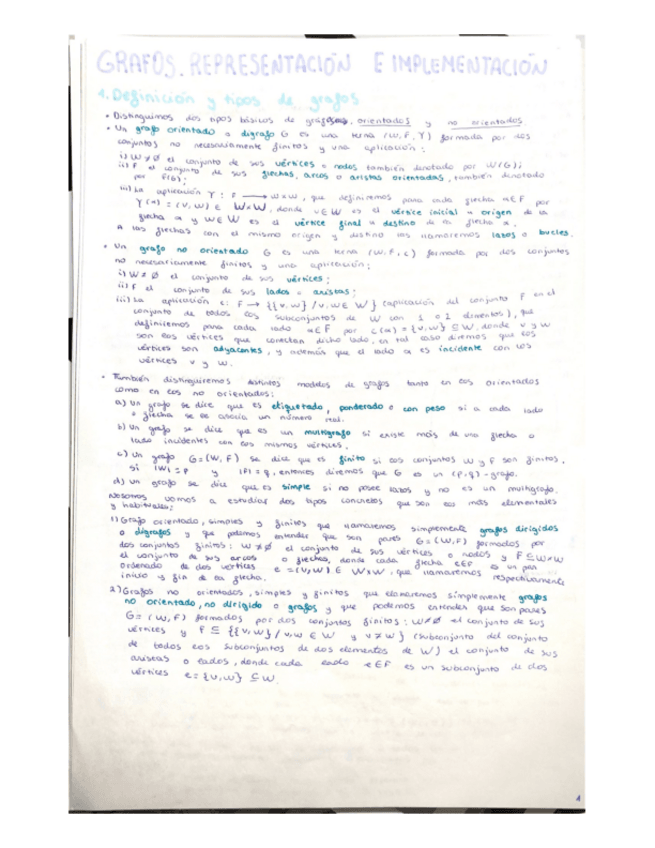 GRAFOS. REPRESENTACIÓN E IMPLEMENTACIÓN
1. Definición y tipos de grafos
• Distinguimos dos tipos básicos de grafos, orientados y no orientados.
• Un grafo orientado o digrafo G es una terna (W, F, γ) formada por dos
conjuntos no necesariamente finitos y una aplicación:
i) W ≠ ∅ el conjunto de sus vértices o nodos también denotado por W(G);
ii) F el conjunto de sus flechas, arcos o aristas orientadas, también denotado
por F(G);
iii) La aplicación γ: F → W×W, que definiremos para cada flecha α∈F por
γ(α) = (v,w) ∈ W×W, donde v∈W es el vértice inicial u origen de la
flecha α y w∈W es el vértice final u destino de la flecha α.
A las flechas con el mismo origen y destino las llamaremos lazos o bucles.
• Un grafo no orientado G es una terna (W, F, c) formada por dos conjuntos
no necesariamente finitos y una aplicación:
i) W ≠ ∅ el conjunto de sus vértices;
ii) F el conjunto de sus lados o aristas;
iii) La aplicación c: F → {{v,w} / v,w ∈ W} (aplicación del conjunto F en el
conjunto de todos los subconjuntos de W con 1 o 2 elementos), que
definiremos para cada lado α∈F por c(α) = {v,w} ⊆ W, donde v y w
son los vértices que conectan dicho lado, en tal caso diremos que los
vértices son adyacentes, y además que el lado α es incidente con los
vértices v y w.
• También distinguiremos distintos modelos de grafos tanto en los orientados
como en los no orientados:
a) Un grafo se dice que es etiquetado, ponderado o con peso si a cada lado
o flecha se le asocia un número real.
b) Un grafo se dice que es un multigrafo si existe más de una flecha o
lado incidentes con los mismos vértices.
c) Un grafo G=(W, F) se dice que es finito si los conjuntos W y F son finitos,
si |W| = p y |F| = q, entonces diremos que G es un (p,q)-grafo.
d) Un grafo se dice que es simple si no posee lazos y no es un multigrafo.
Nosotros vamos a estudiar dos tipos concretos que son los más elementales
y habituales:
1) Grafo orientado, simples y finitos que llamaremos simplemente grafos dirigidos
o digrafos y que podemos entender que son pares G=(W,F) formados por
dos conjuntos finitos: W≠∅ el conjunto de sus vértices o nodos y F⊆W×W
el conjunto de sus arcos o flechas, donde cada flecha e∈F es un par
ordenado de dos vértices e=(v,w) ∈ W×W, que llamaremos respectivamente
inicio y fin de la flecha.
2) Grafos no orientados, simples y finitos que llamaremos simplemente grafos
no orientado, no dirigido o grafos y que podemos entender que son pares
G=(W, F) formados por dos conjuntos finitos: W≠∅ el conjunto de sus
vértices y F ⊆ {{v,w} / v,w ∈ W y v≠w} (subconjunto del conjunto
de todos los subconjuntos de dos elementos de W) el conjunto de sus
aristas o lados, donde cada lado e∈F es un subconjunto de dos
vértices e={v,w} ⊆ W.
1